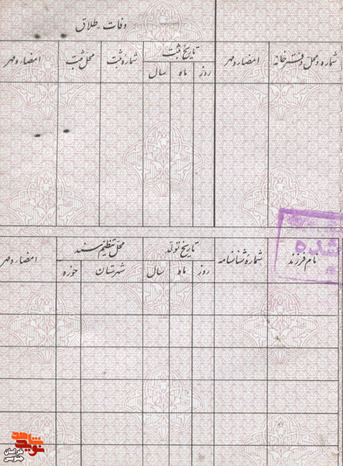 وفات . طلاق
شماره و محل دفترخانه امضاء و مهر تاریخ ثبت شماره ثبت محل ثبت امضاء و مهر
روز ماه سال
شده
نام فرزند شماره شناسنامه تاریخ تولد محل تنظیم سند امضاء و مهر
روز ماه سال شهرستان حوزه
نوید شاهد
خراسان جنوبی